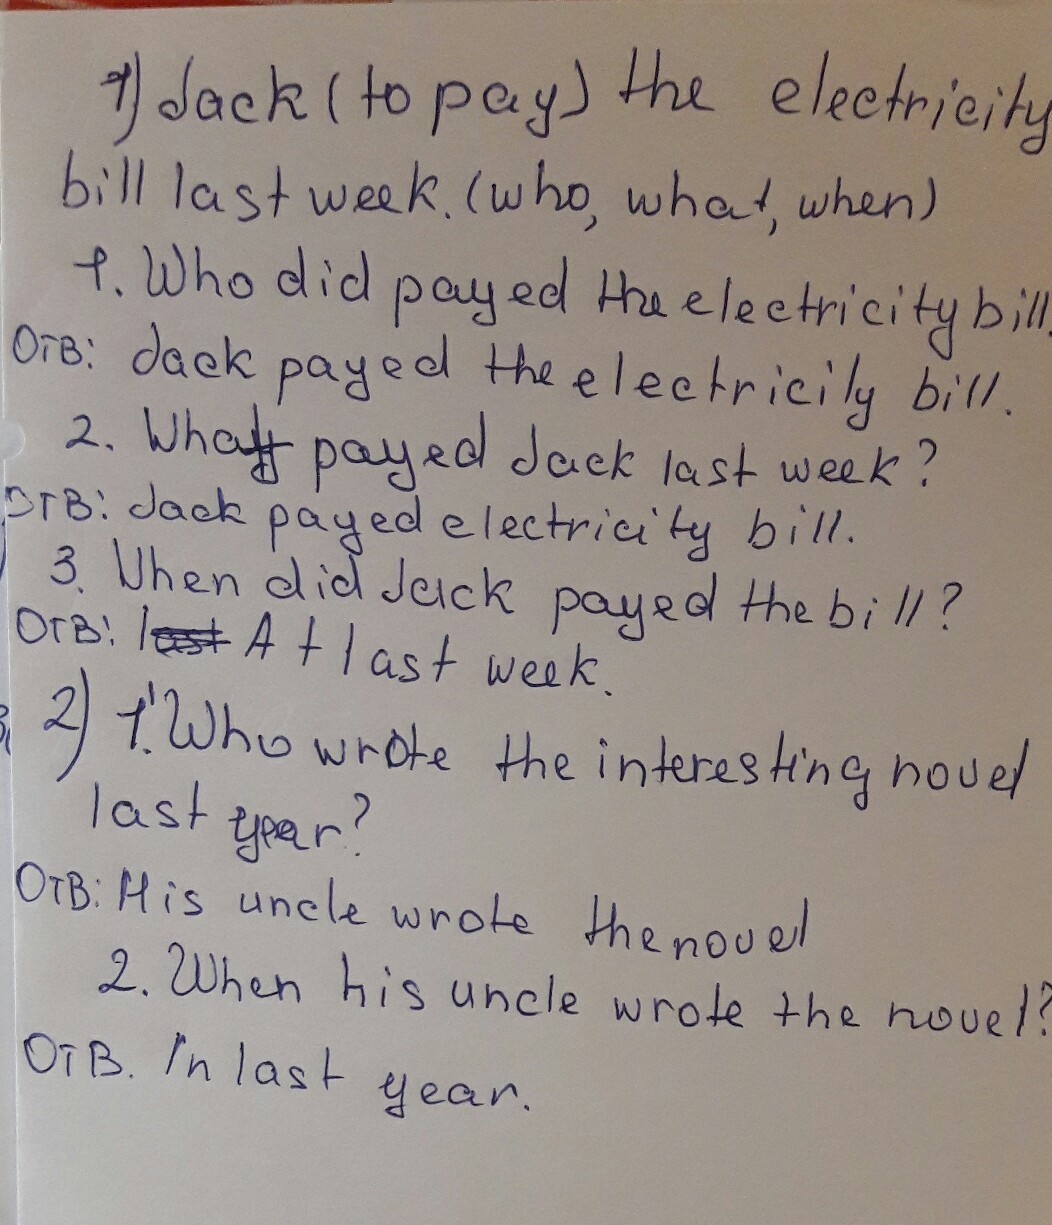 1) Jack (to pay) the electricity
bill last week. (who, what, when)
1. Who did payed the electricity bill.
Отв: Jack payed the electricily bill.
2. What payed Jack last week?
Отв: Jack payed electricity bill.
3. When did Jack payed the bill?
Отв: last At last week.
2) 1. Who wrote the interesting novel
last year?
Отв: His uncle wrote the novel
2. When his uncle wrote the novel?
Отв. In last year.